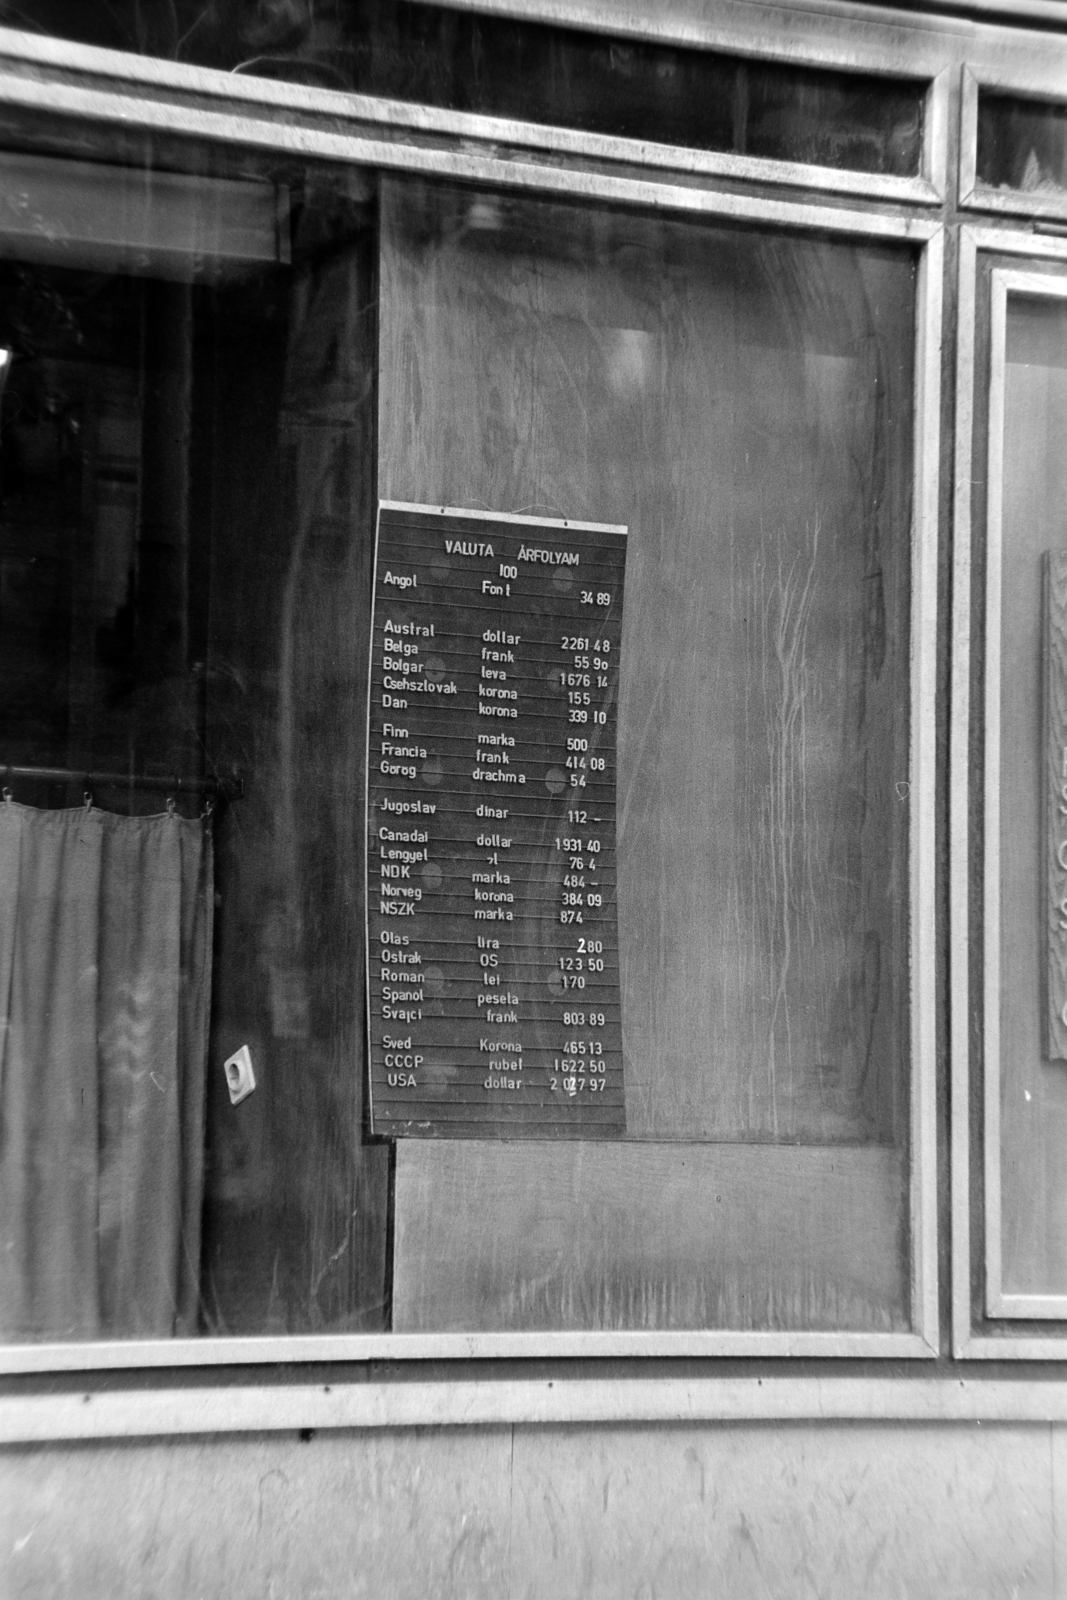 VALUTA ÁRFOLYAM
100
Angol Font 34 89
Austral dollar 2261 48
Belga frank 55 90
Bolgar leva 1676 14
Csehszlovak korona 155
Dan korona 339 10
Finn marka 500
Francia frank 414 08
Görög drachma 54
Jugoslav dinar 112 –
Canadai dollar 1931 40
Lengyel zl 76 4
NDK marka 484 –
Norveg korona 384 09
NSZK marka 874
Olas lira 280
Ostrak OS 123 50
Roman lei 170
Spanol peseta
Svajci frank 803 89
Sved Korona 465 13
CCCP rubel 1622 50
USA dollar 2 027 97